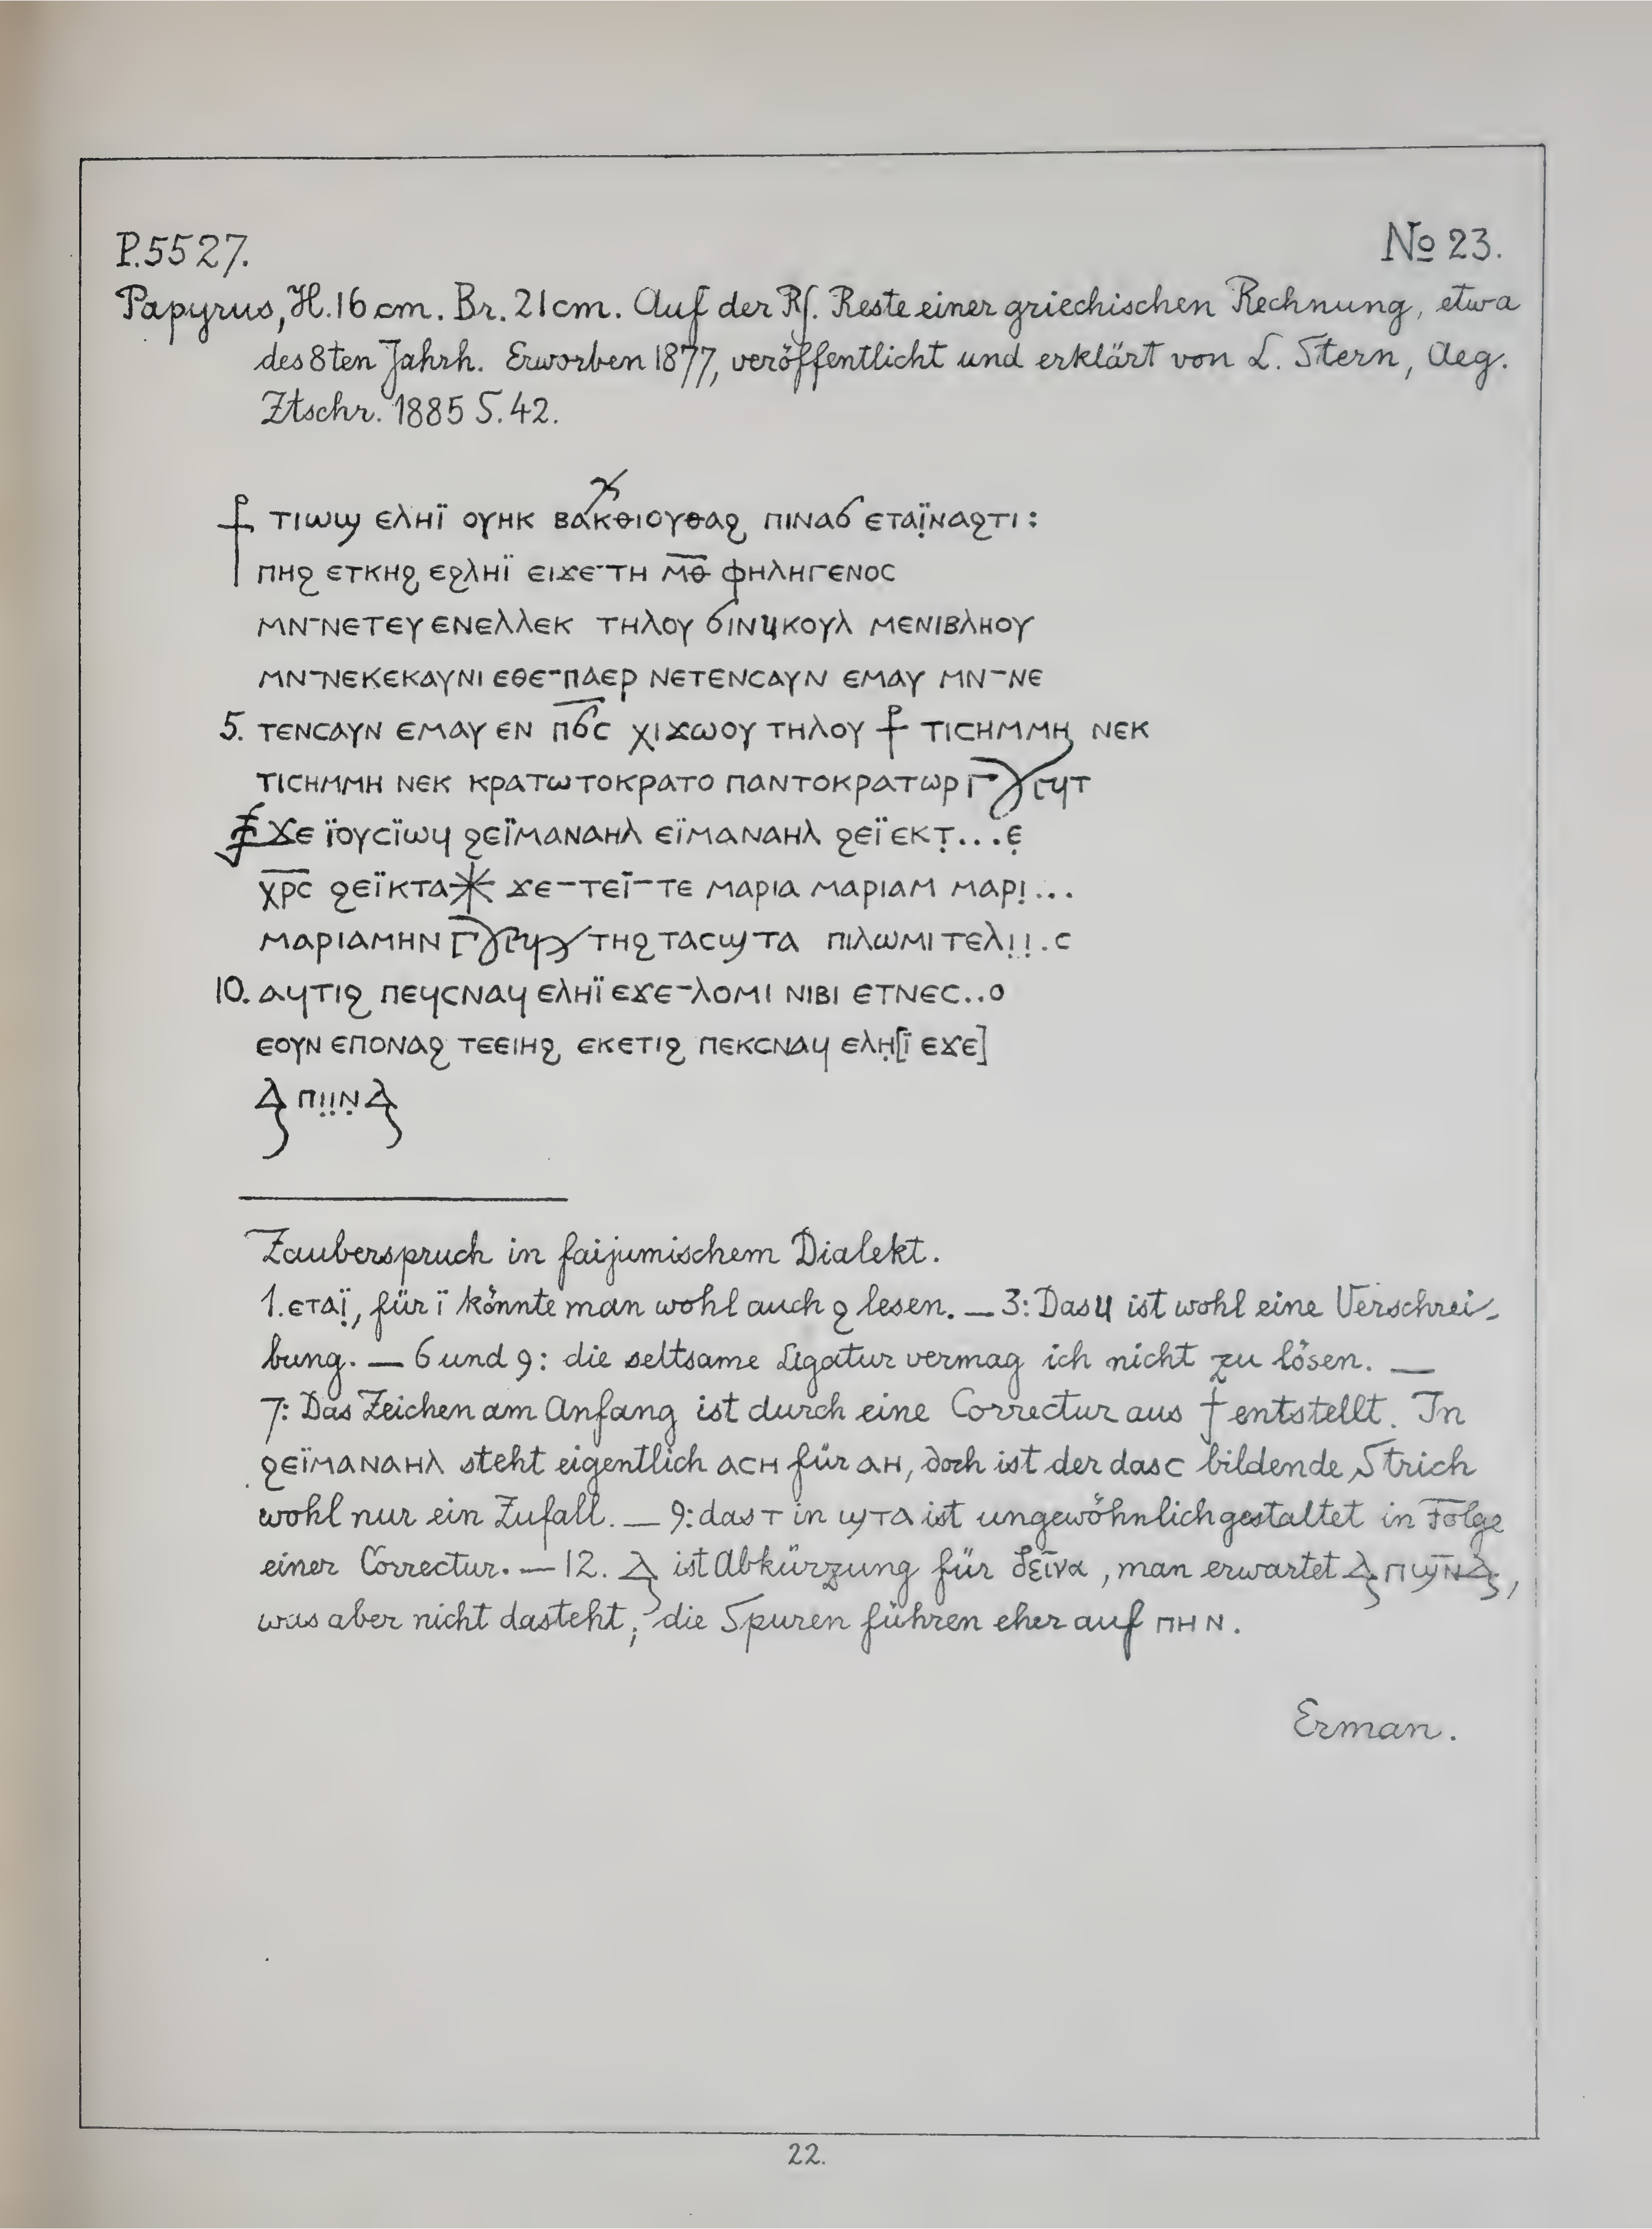 P.5527.
№ 23.
Papyrus, H. 16 cm. Br. 21 cm. Auf der Rs. Reste einer griechischen Rechnung, etwa
des 8ten Jahrh. Erworben 1877, veröffentlicht und erklärt von L. Stern, Aeg.
Ztschr. 1885 S. 42.
ⲧⲓⲱϣ ⲉⲗⲏⲓ̈ ⲟⲩⲏⲕ ⲃⲁⲕⲑⲓⲟⲩⲑⲁϩ ⲡⲓⲛⲁϭ ⲉⲧⲁⲓ̣̈ⲛⲁϩⲧⲓ :
ⲡⲏϩ ⲉⲧⲕⲏϩ ⲉϩⲗⲏⲓ̈ ⲉⲓϫⲉ-ⲧⲏ ⲙ̅ⲑ̅ ⲫⲏⲗⲏⲅⲉⲛⲟⲥ
ⲙⲛ-ⲛⲉⲧⲉⲩ ⲉⲛⲉⲗⲗⲉⲕ ⲧⲏⲗⲟⲩ ϭⲓⲛϥⲕⲟⲩⲗ ⲙⲉⲛⲓⲃⲗⲏⲟⲩ
ⲙⲛ-ⲛⲉⲕⲉⲕⲁⲩⲛⲓ ⲉⲑⲉ-ⲡⲁⲉⲣ ⲛⲉⲧⲉⲛⲥⲁⲩⲛ ⲉⲙⲁⲩ ⲙⲛ-ⲛⲉ
5. ⲧⲉⲛⲥⲁⲩⲛ ⲉⲙⲁⲩ ⲉⲛ ⲡ̅ϭ̅ⲥ ⲭⲓϫⲱⲟⲩ ⲧⲏⲗⲟⲩ ⳨ ⲧⲓⲥⲏⲙⲙⲏ ⲛⲉⲕ
ⲧⲓⲥⲏⲙⲙⲏ ⲛⲉⲕ ⲕⲣⲁⲧⲱⲧⲟⲕⲣⲁⲧⲟ ⲡⲁⲛⲧⲟⲕⲣⲁⲧⲱⲣ
ϫⲉ ⲓ̈ⲟⲩⲥⲓ̈ⲱϥ ϩⲉⲓ̈ⲙⲁⲛⲁⲏⲗ ⲉⲓ̈ⲙⲁⲛⲁⲏⲗ ϩⲉⲓ̈ⲉⲕⲧ̣...ⲉ̣
ⲭ̅ⲣ̅ⲥ̅ ϩⲉⲓ̈ⲕⲧⲁ⚹ ϫⲉ-ⲧⲉⲓ̈-ⲧⲉ ⲙⲁⲣⲓⲁ ⲙⲁⲣⲓⲁⲙ ⲙⲁⲣⲓ̣...
ⲙⲁⲣⲓⲁⲙⲏⲛ ⲧⲏϩ ⲧⲁⲥϣⲧⲁ ⲡⲓⲗⲱⲙⲓ ⲧⲉⲗⲓ̣ⲓ̣.ⲥ
10. ⲁϥⲧⲓϩ ⲡⲉϥⲥⲛⲁϥ ⲉⲗⲏⲓ̈ ⲉϫⲉ-ⲗⲟⲙⲓ ⲛⲓⲃⲓ ⲉⲧⲛⲉⲥ..ⲟ
ⲉⲟⲩⲛ ⲉⲡⲟⲛⲁϩ ⲧⲉⲉⲓⲏϩ ⲉⲕⲉⲧⲓϩ ⲡⲉⲕⲥⲛⲁϥ ⲉⲗⲏ̣[ⲓ̈ ⲉϫⲉ]
ⲇ ⲡⲓ̣ⲓ̣ⲛ̣ ⲇ
Zauberspruch in faijumischem Dialekt.
1. ⲉⲧⲁⲓ̣̈, für ⲓ̈ könnte man wohl auch ϩ lesen. — 3: Das ϥ ist wohl eine Verschrei-
bung. — 6 und 9: die seltsame Ligatur vermag ich nicht zu lösen. —
7: Das Zeichen am Anfang ist durch eine Correctur aus ⳨ entstellt. In
ϩⲉⲓ̈ⲙⲁⲛⲁⲏⲗ steht eigentlich ⲁⲥⲏ für ⲁⲏ, doch ist der das ⲥ bildende Strich
wohl nur ein Zufall. — 9: das ⲧ in ϣⲧⲁ ist ungewöhnlich gestaltet in Folge
einer Correctur. — 12. ⲇ ist Abkürzung für δεῖνα, man erwartet ⲇ ⲡϣ̅ⲛ̅ ⲇ,
was aber nicht dasteht; die Spuren führen eher auf ⲡⲏⲛ.
Erman.
22.